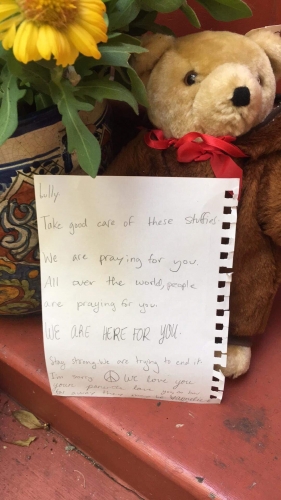 Lilly
Take good care of these Stuffies.
We are praying for you.
All over the world, people
are praying for you.
WE ARE HERE FOR YOU.
Stay strong we are trying to end it
I'm sorry We love you
your have you in
for over